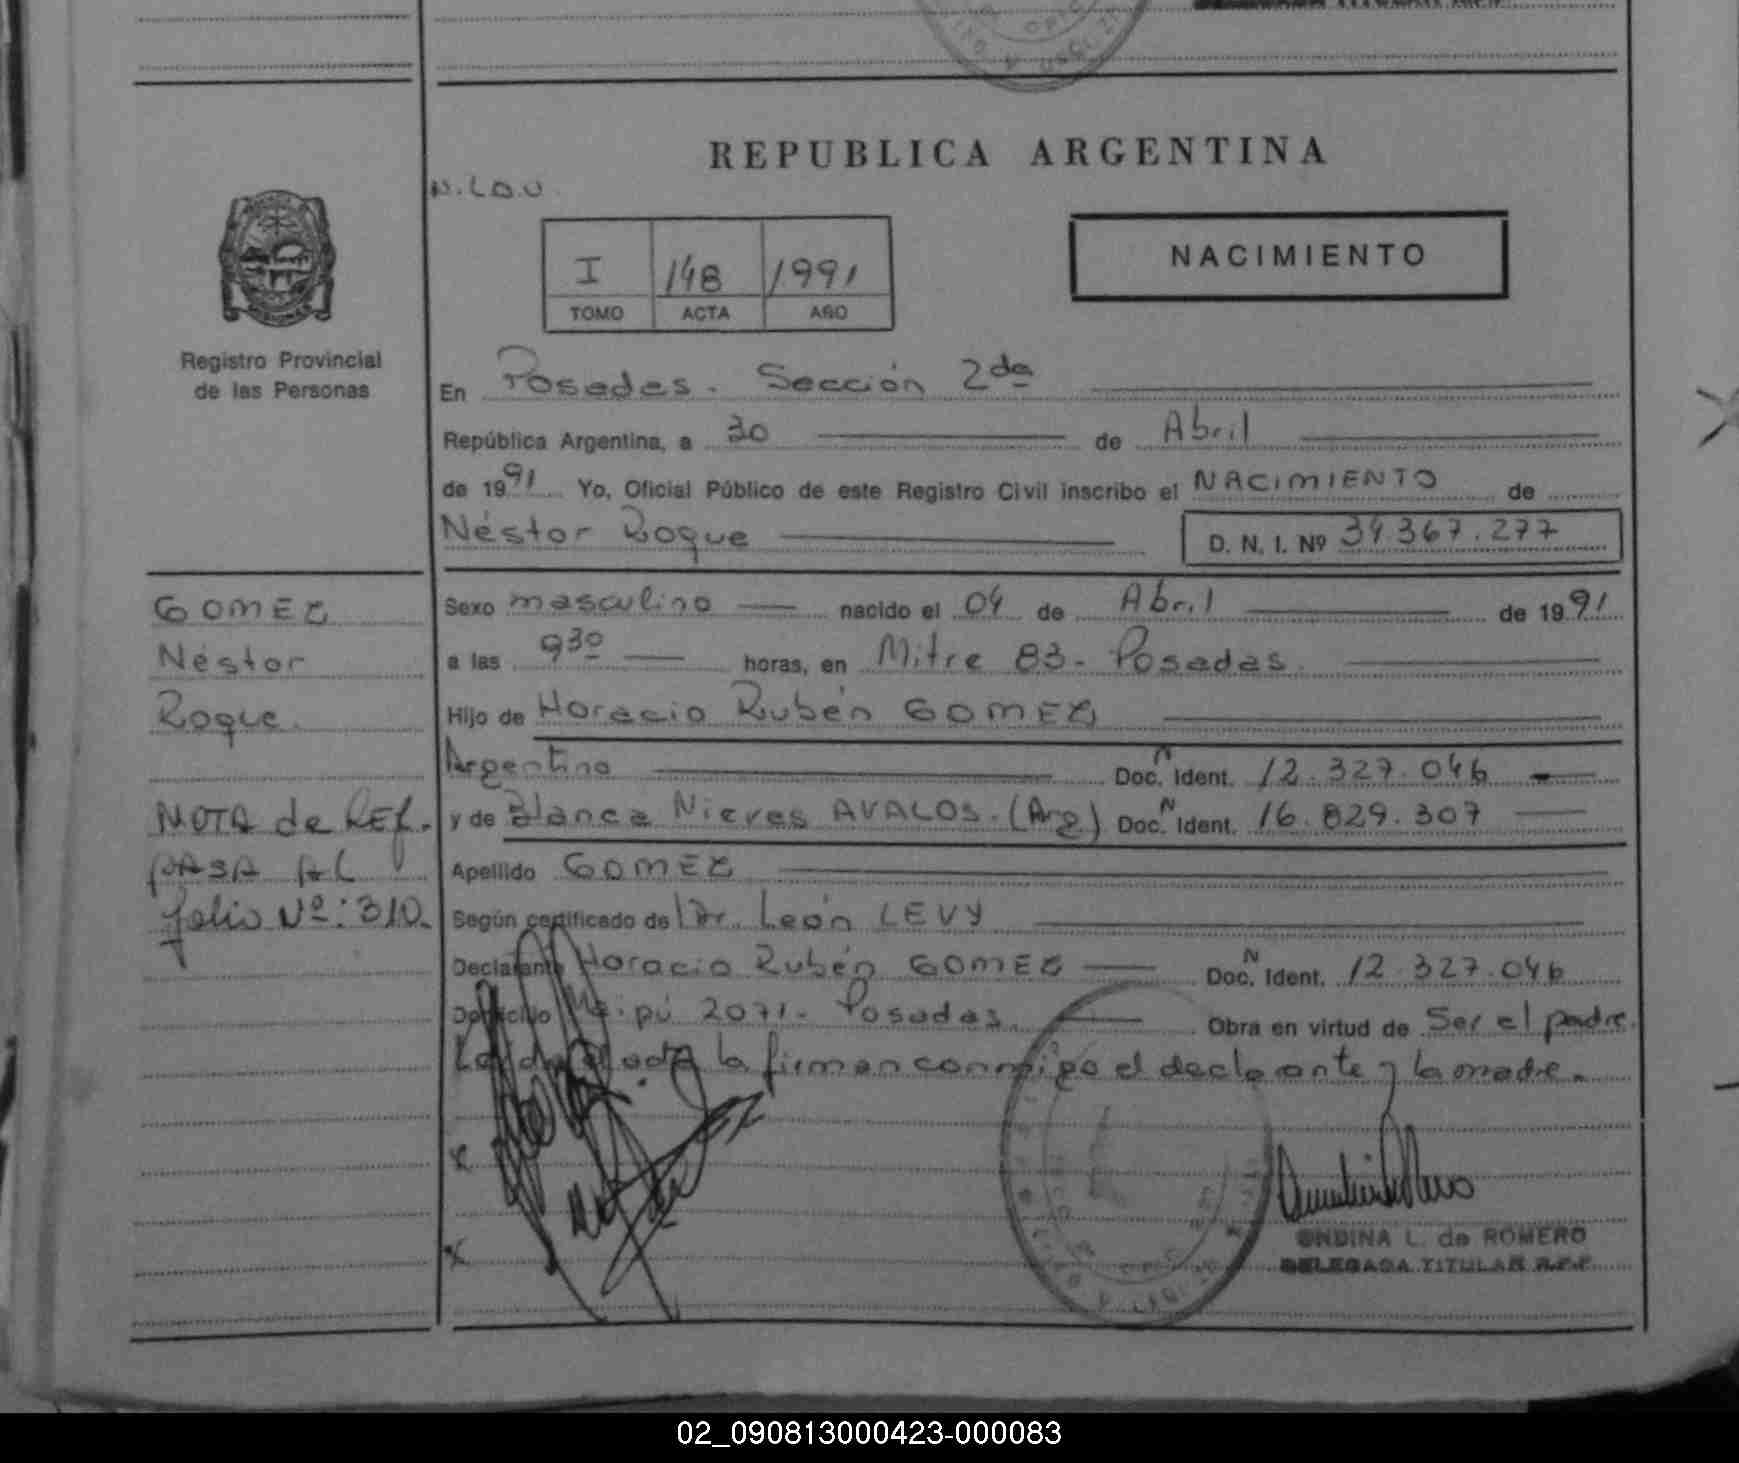 REPUBLICA ARGENTINA
N.L.O.U.
I 148 1991
TOMO ACTA AÑO
NACIMIENTO
Registro Provincial
de las Personas
En Posadas. Sección 2da
República Argentina, a 30 de Abril
de 1991 Yo, Oficial Público de este Registro Civil inscribo el NACIMIENTO de
Néstor Roque D. N. I. Nº 34.367.277
GOMEZ
Néstor
Roque.
Sexo masculino nacido el 04 de Abril de 1991
a las 930 horas, en Mitre 83. Posadas.
Hijo de Horacio Rubén GOMEZ
Argentino Doc. N Ident. 12.327.046
y de Blanca Nieves AVALOS. (Arg) Doc. N Ident. 16.829.307
Apellido GOMEZ
Según certificado de Dr. León LEVY
Declarante Horacio Rubén GOMEZ Doc. N Ident. 12.327.046
Domicilio Maipú 2071. Posadas. Obra en virtud de Ser el padre.
la firman conmigo el declarante y la madre.
NOTA de REF.
PASA AL
folio Nº: 310.
x
x
ONDINA L. de ROMERO
DELEGADA TITULAR R.P.P.
02_090813000423-000083